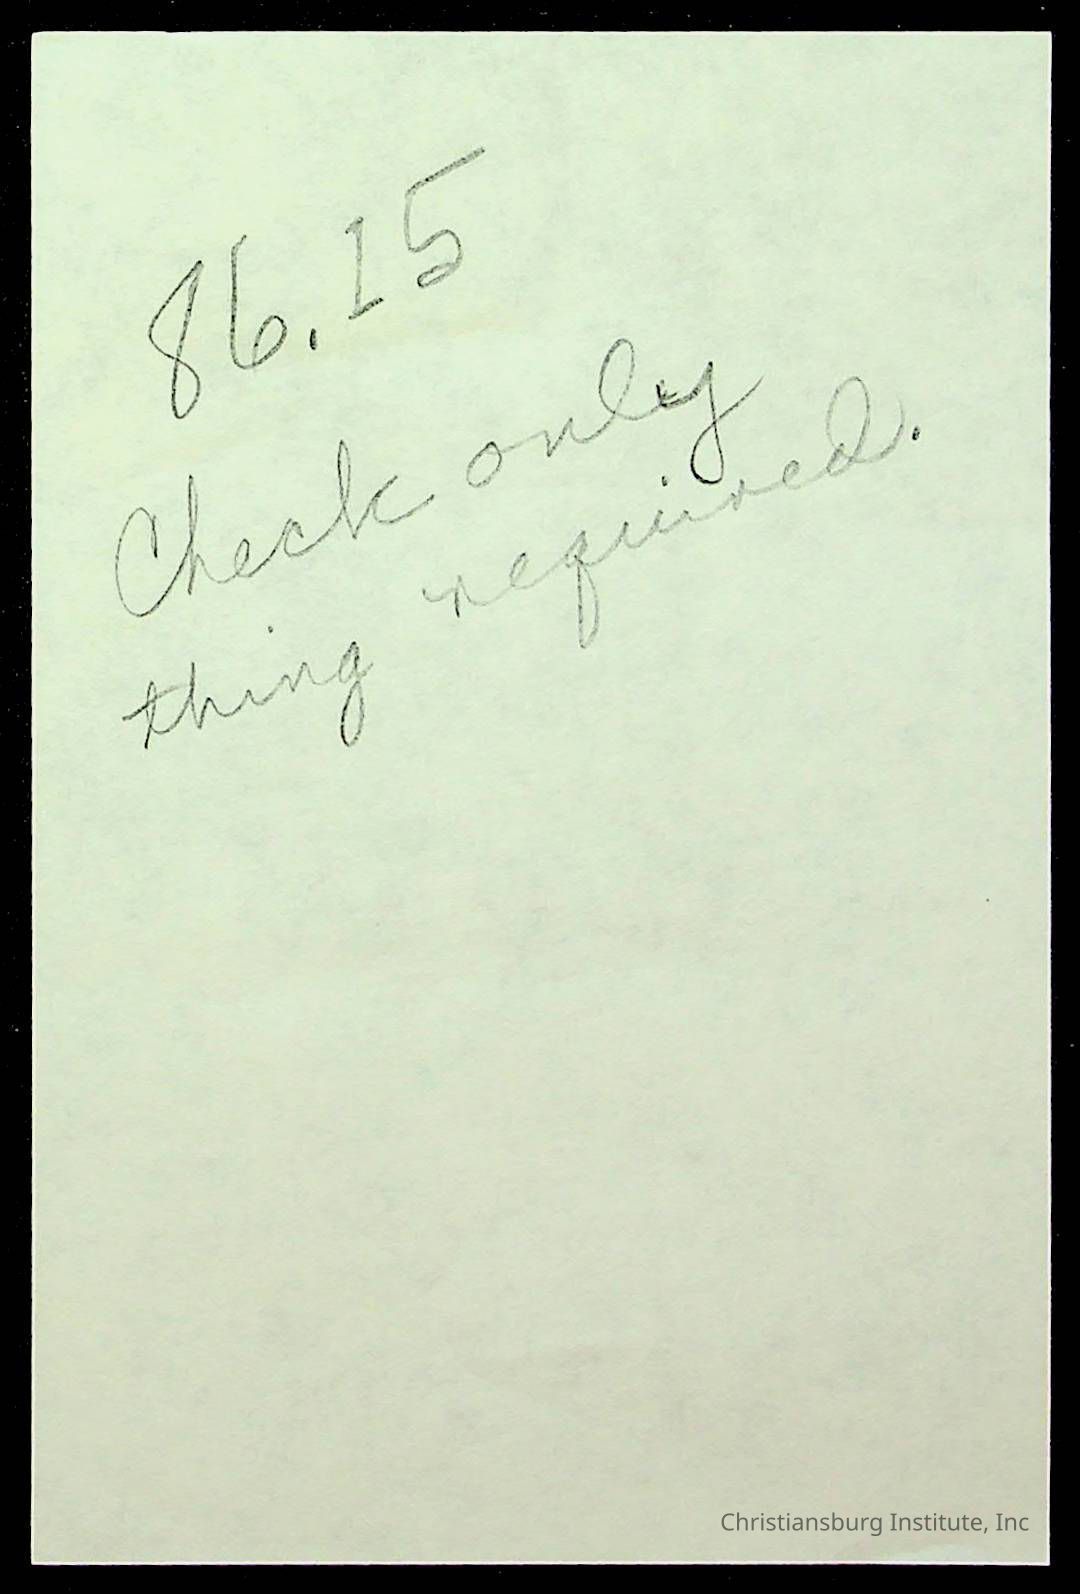 86.15
Check only
thing required.
Christiansburg Institute, Inc